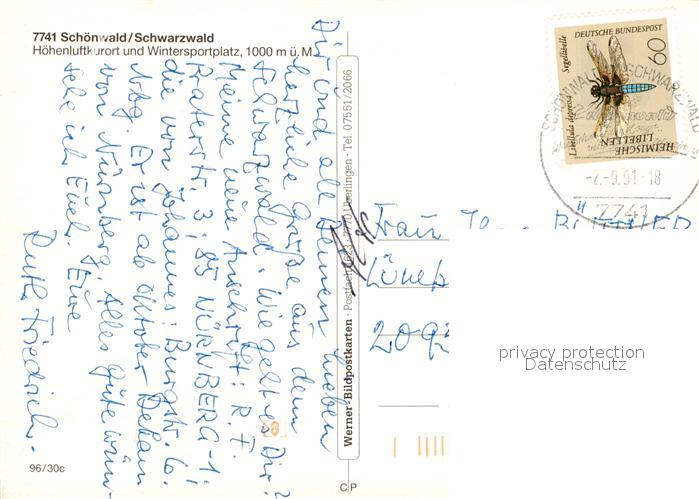 7741 Schönwald/Schwarzwald
Höhenluftkurort und Wintersportplatz, 1000 m ü. M.
Dir und all Deinen Lieben
herzliche Grüße aus dem
Schwarzwald. Wie geht es Dir?
Meine neue Anschrift: R. F.
Praterstr. 3; 85 NÜRNBERG-1;
die von Johannes: Burgstr. 6.
Nbg. Er ist ab Oktober Dekan
von Nürnberg. Alles Gute wün-
sche ich Euch. Eure
Ruth Friedrich.
96/30c
Werner-Bildpostkarten · Postfach · Überlingen · Tel. 07551/2066
C P
DEUTSCHE BUNDESPOST
60
Segellibelle
Libellula depressa
HEIMISCHE
LIBELLEN
SCHÖNWALD SCHWARZWALD
-2.-9.91-18
7741
Frau
Lüneb
209
privacy protection
Datenschutz